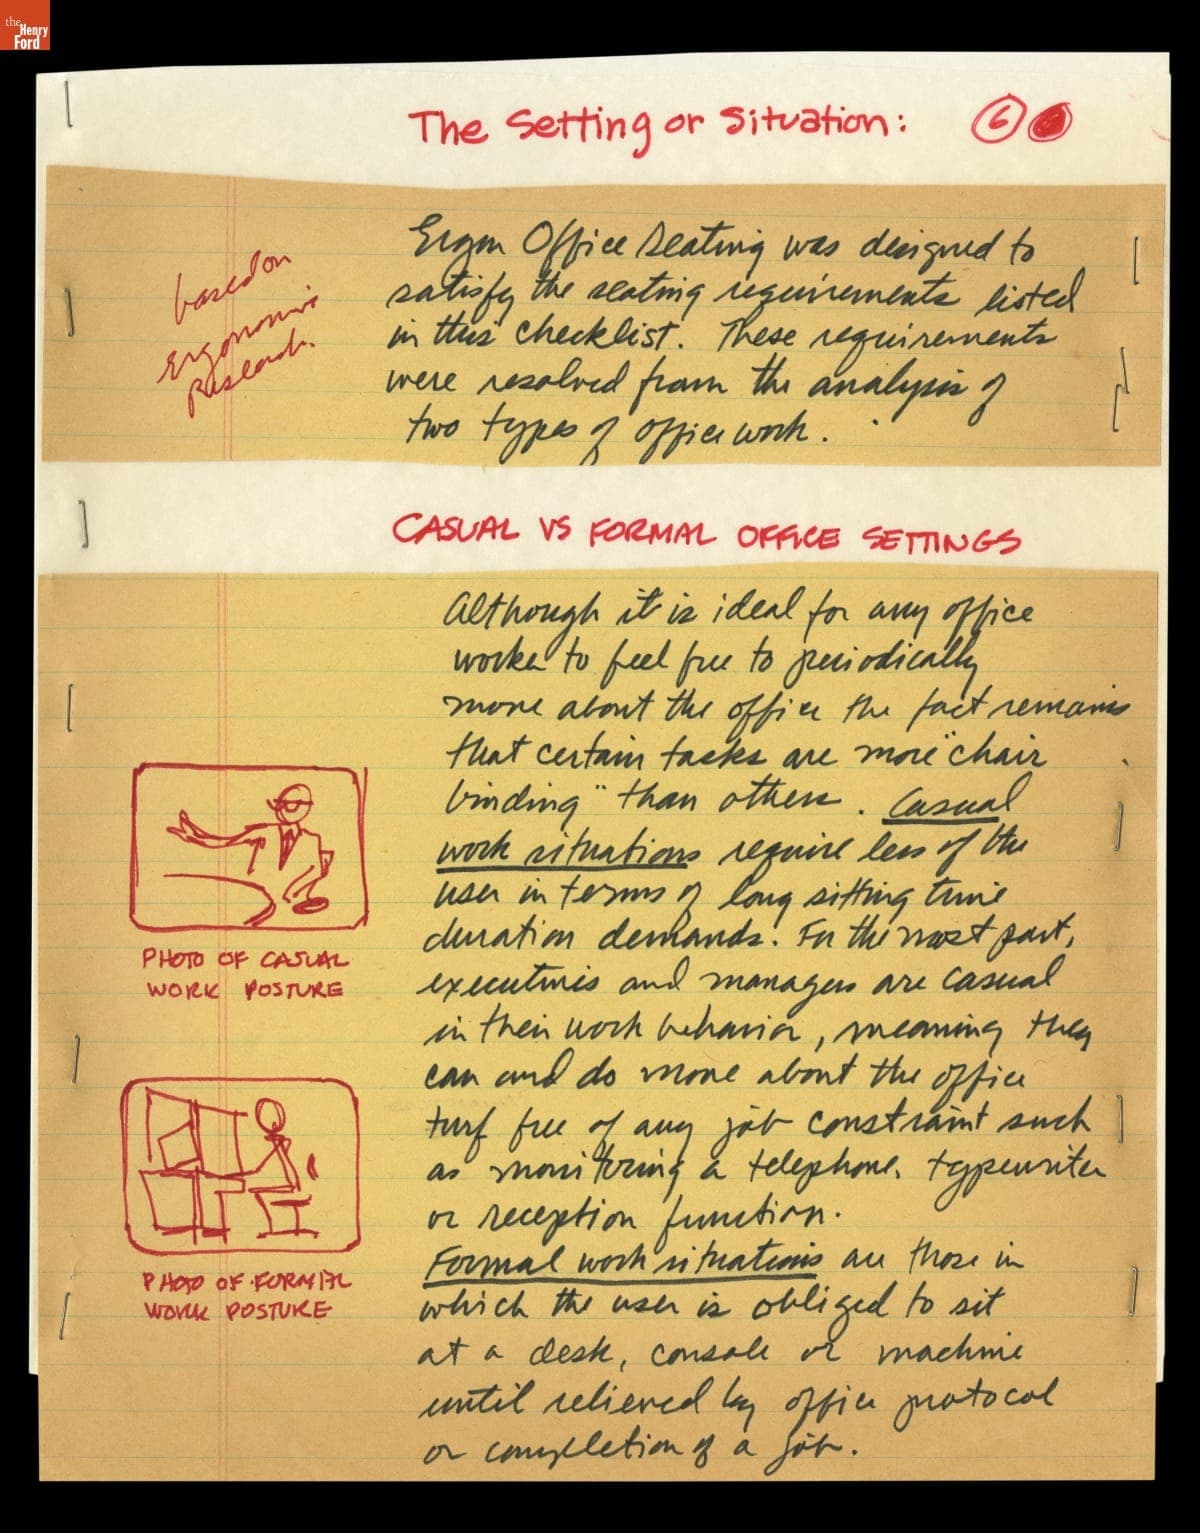 the
Henry
Ford
The Setting or Situation: 6
based on
ergonomic
Research.
Ergon Office Seating was designed to
satisfy the seating requirements listed
in this checklist. These requirements
were resolved from the analysis of
two types of office work.
CASUAL VS FORMAL OFFICE SETTINGS
Although it is ideal for any office
worker to feel free to periodically
move about the office the fact remains
that certain tasks are more "chair
binding" than others. Casual
work situations require less of the
user in terms of long sitting time
duration demands. For the most part,
executives and managers are casual
in their work behavior, meaning they
can and do move about the office
turf free of any job constraint such
as monitoring a telephone, typewriter
or reception function.
Formal work situations are those in
which the user is obliged to sit
at a desk, console or machine
until relieved by office protocol
or completion of a job.
PHOTO OF CASUAL
WORK POSTURE
PHOTO OF FORMAL
WORK POSTURE